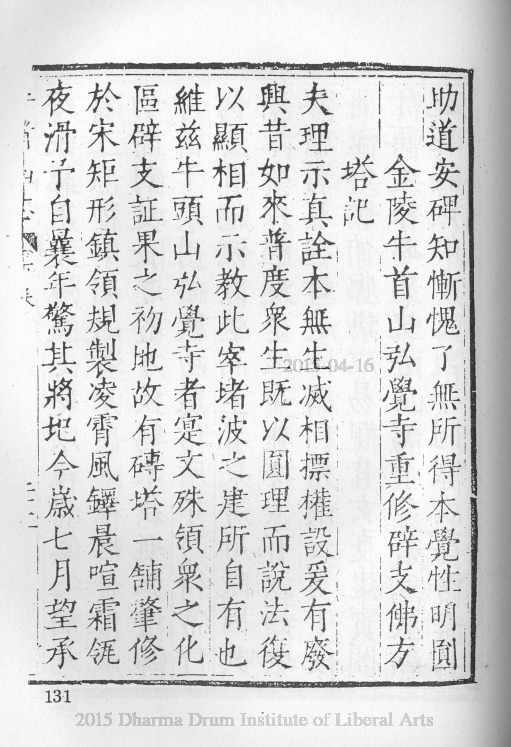 助道安碑知慚愧了無所得本覺性明圓
金陵牛首山弘覺寺重修辟支佛方
塔記
夫理示真詮本無生滅相摽權設爰有廢
興昔如來普度衆生既以圓理而說法復
以顯相而示教此窣堵波之建所自有也
維茲牛頭山弘覺寺者寔文殊領衆之化
區辟支証果之初地故有磚塔一舖肇修
於宋矩形鎮領規製凌霄風鐸晨喧霜瓴
夜滑予自曩年驚其將圮今歲七月望承
131
2015-04-16
2015 Dharma Drum Institute of Liberal Arts